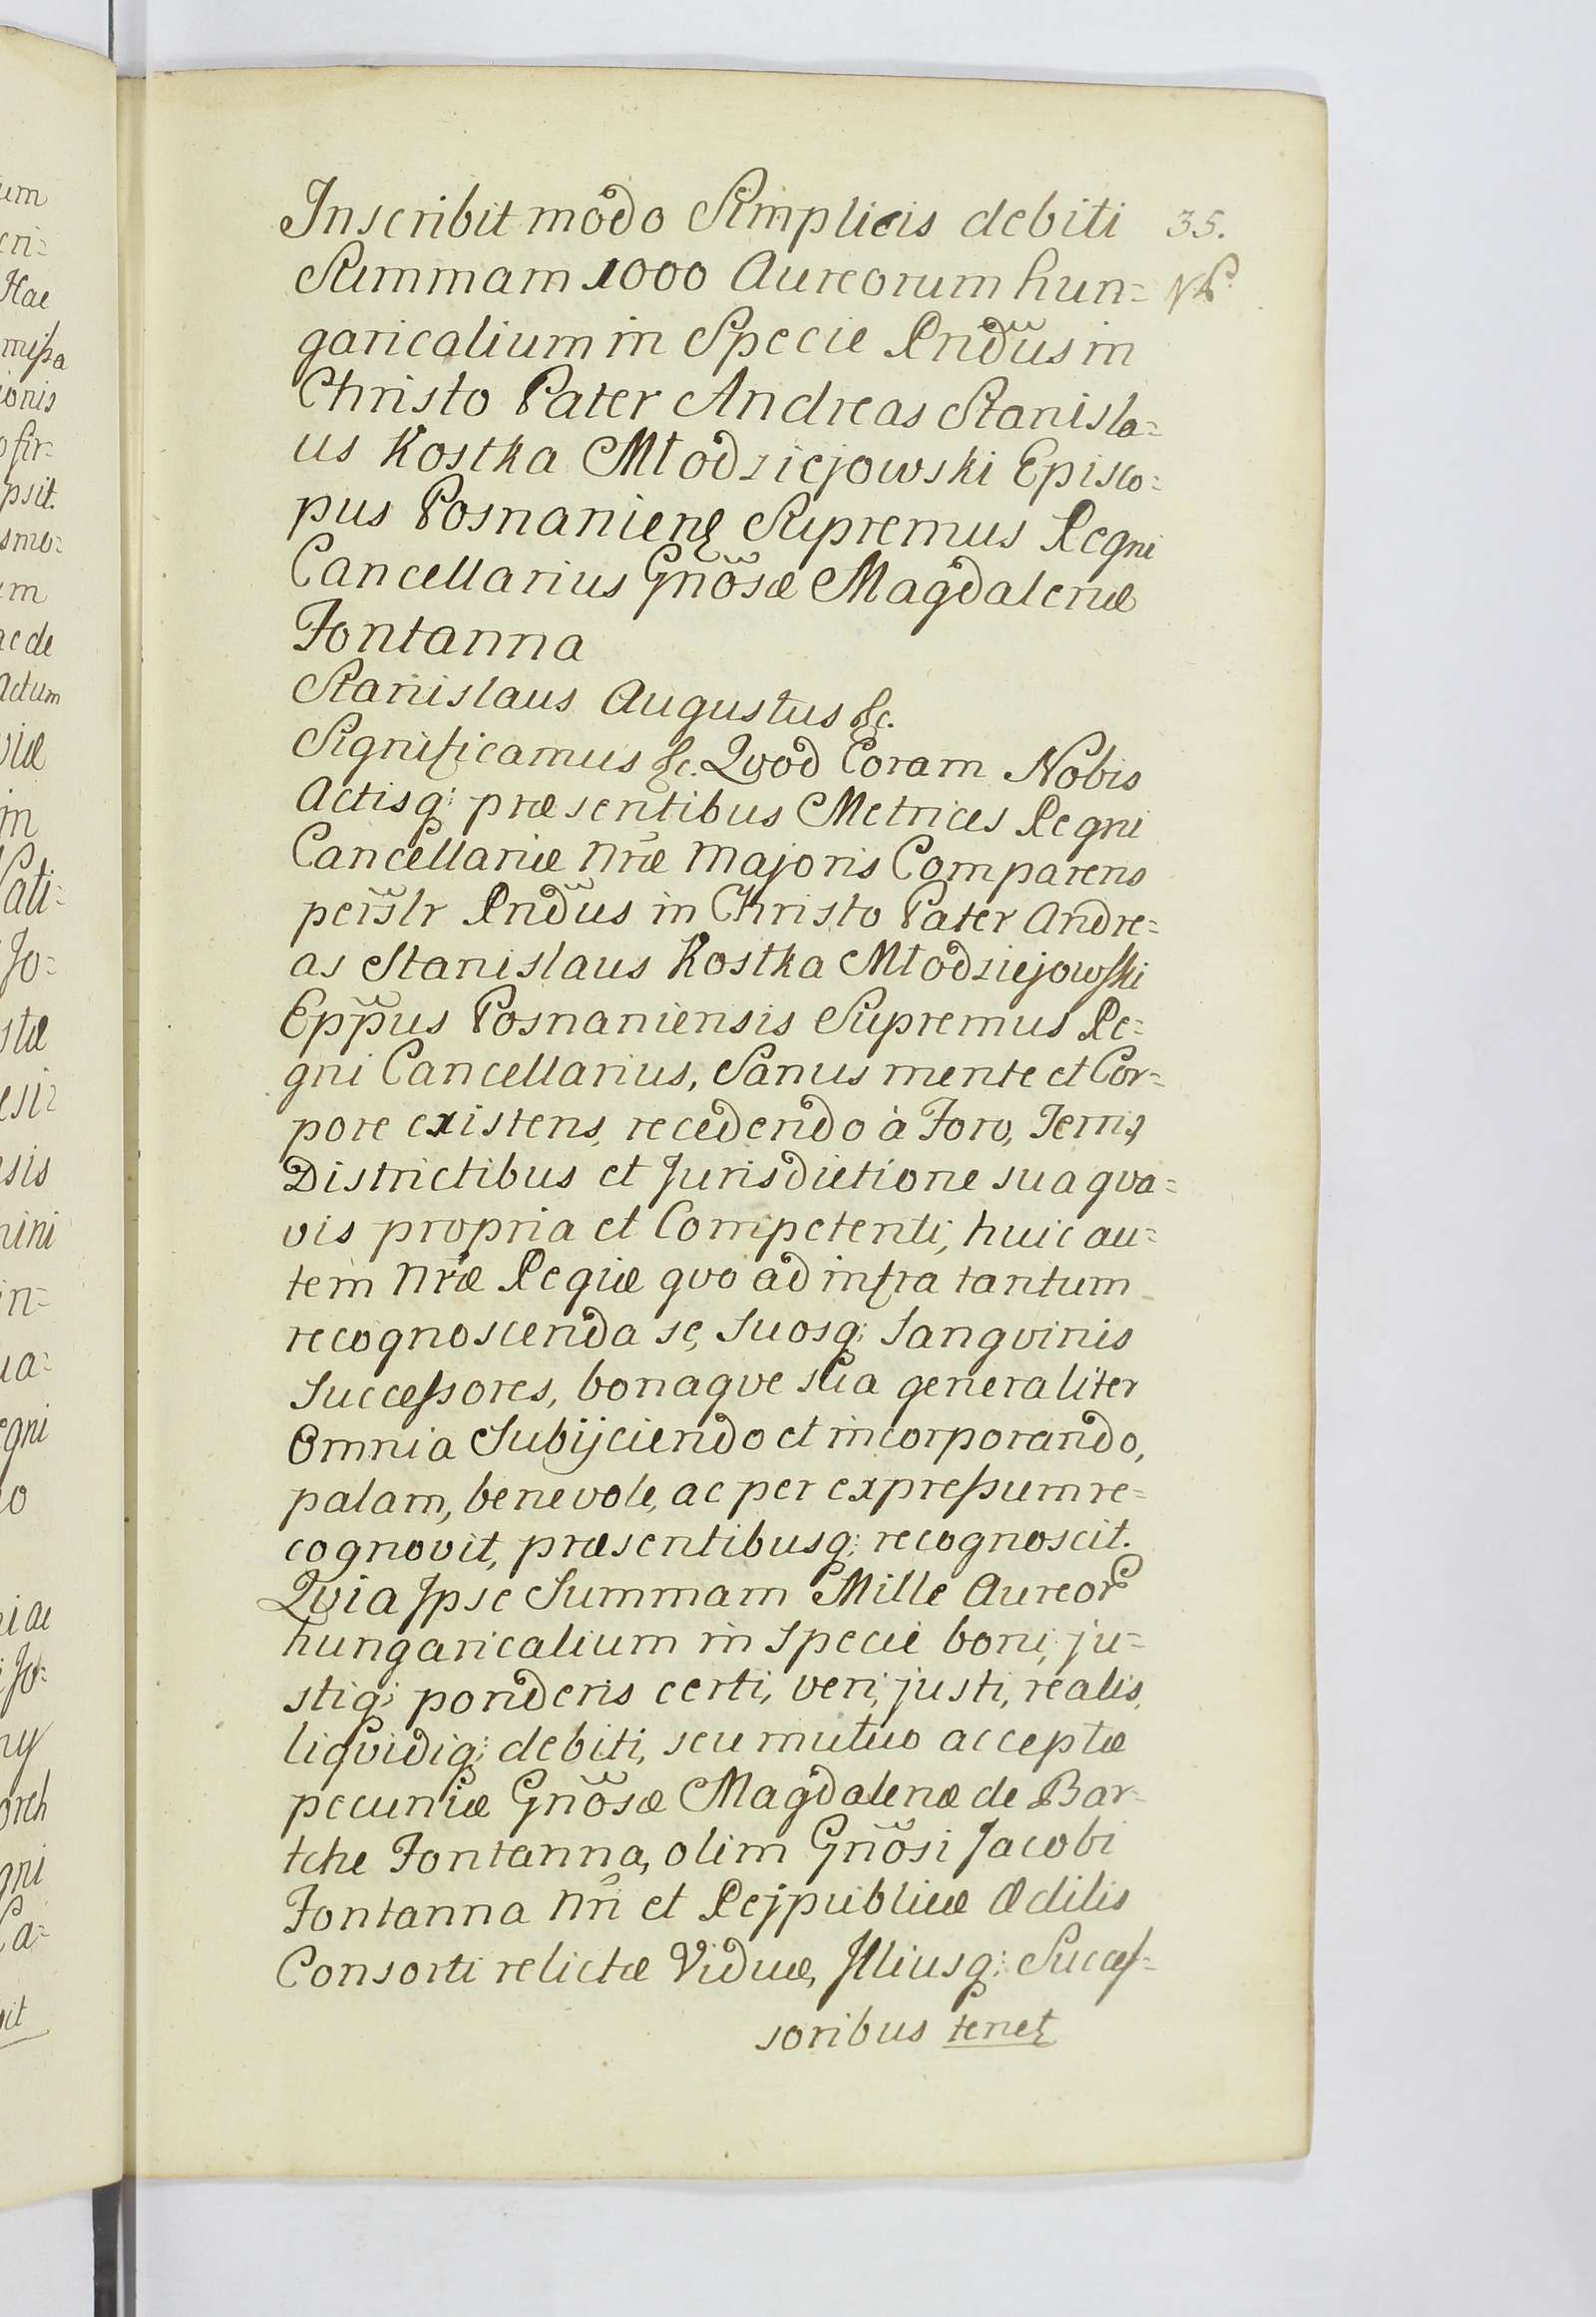 Inscribit modo Simplicis debiti 35.
Summam 1000 Aureorum hun=
garicalium in Specie Rndus in
Christo Pater Andreas Stanisla=
us Kostka Młodziejowski Episco=
pus Posnanien Supremus Regni
Cancellarius Gnosæ Magdalenæ
Fontanna
Stanislaus Augustus &c.
Significamus &c. Qvod Coram Nobis
Actisq; præsentibus Metrices Regni
Cancellariæ Nræ Majoris Comparens
persltr Rndus in Christo Pater Andre=
as Stanislaus Kostka Młodziejowski
Eppus Posnaniensis Supremus Re=
gni Cancellarius, Sanus mente et Cor=
pore existens, recedendo à Foro, Terris
Districtibus et Jurisdictione sua qva=
vis propria et Competenti, huic au=
tem Nræ Regiæ qvo ad infra tantum
recognoscenda se, suosq; sangvinis
successores, bonaqve sua generaliter
Omnia Subijciendo et incorporando,
palam, benevole, ac per expressum re=
cognovit, præsentibusq; recognoscit.
Qvia Ipse Summam Mille Aureor
hungaricalium in specie boni, ju=
stiq; ponderis certi, veri, justi, realis,
liqvidiq; debiti, seu mutuo acceptæ
pecuniæ Gnosæ Magdalenæ de Bar=
tche Fontanna, olim Gnosi Jacobi
Fontanna Nri et Rejpublicæ Ædilis
Consorti relictæ Viduæ, Illiusq; Succes=
soribus tenet